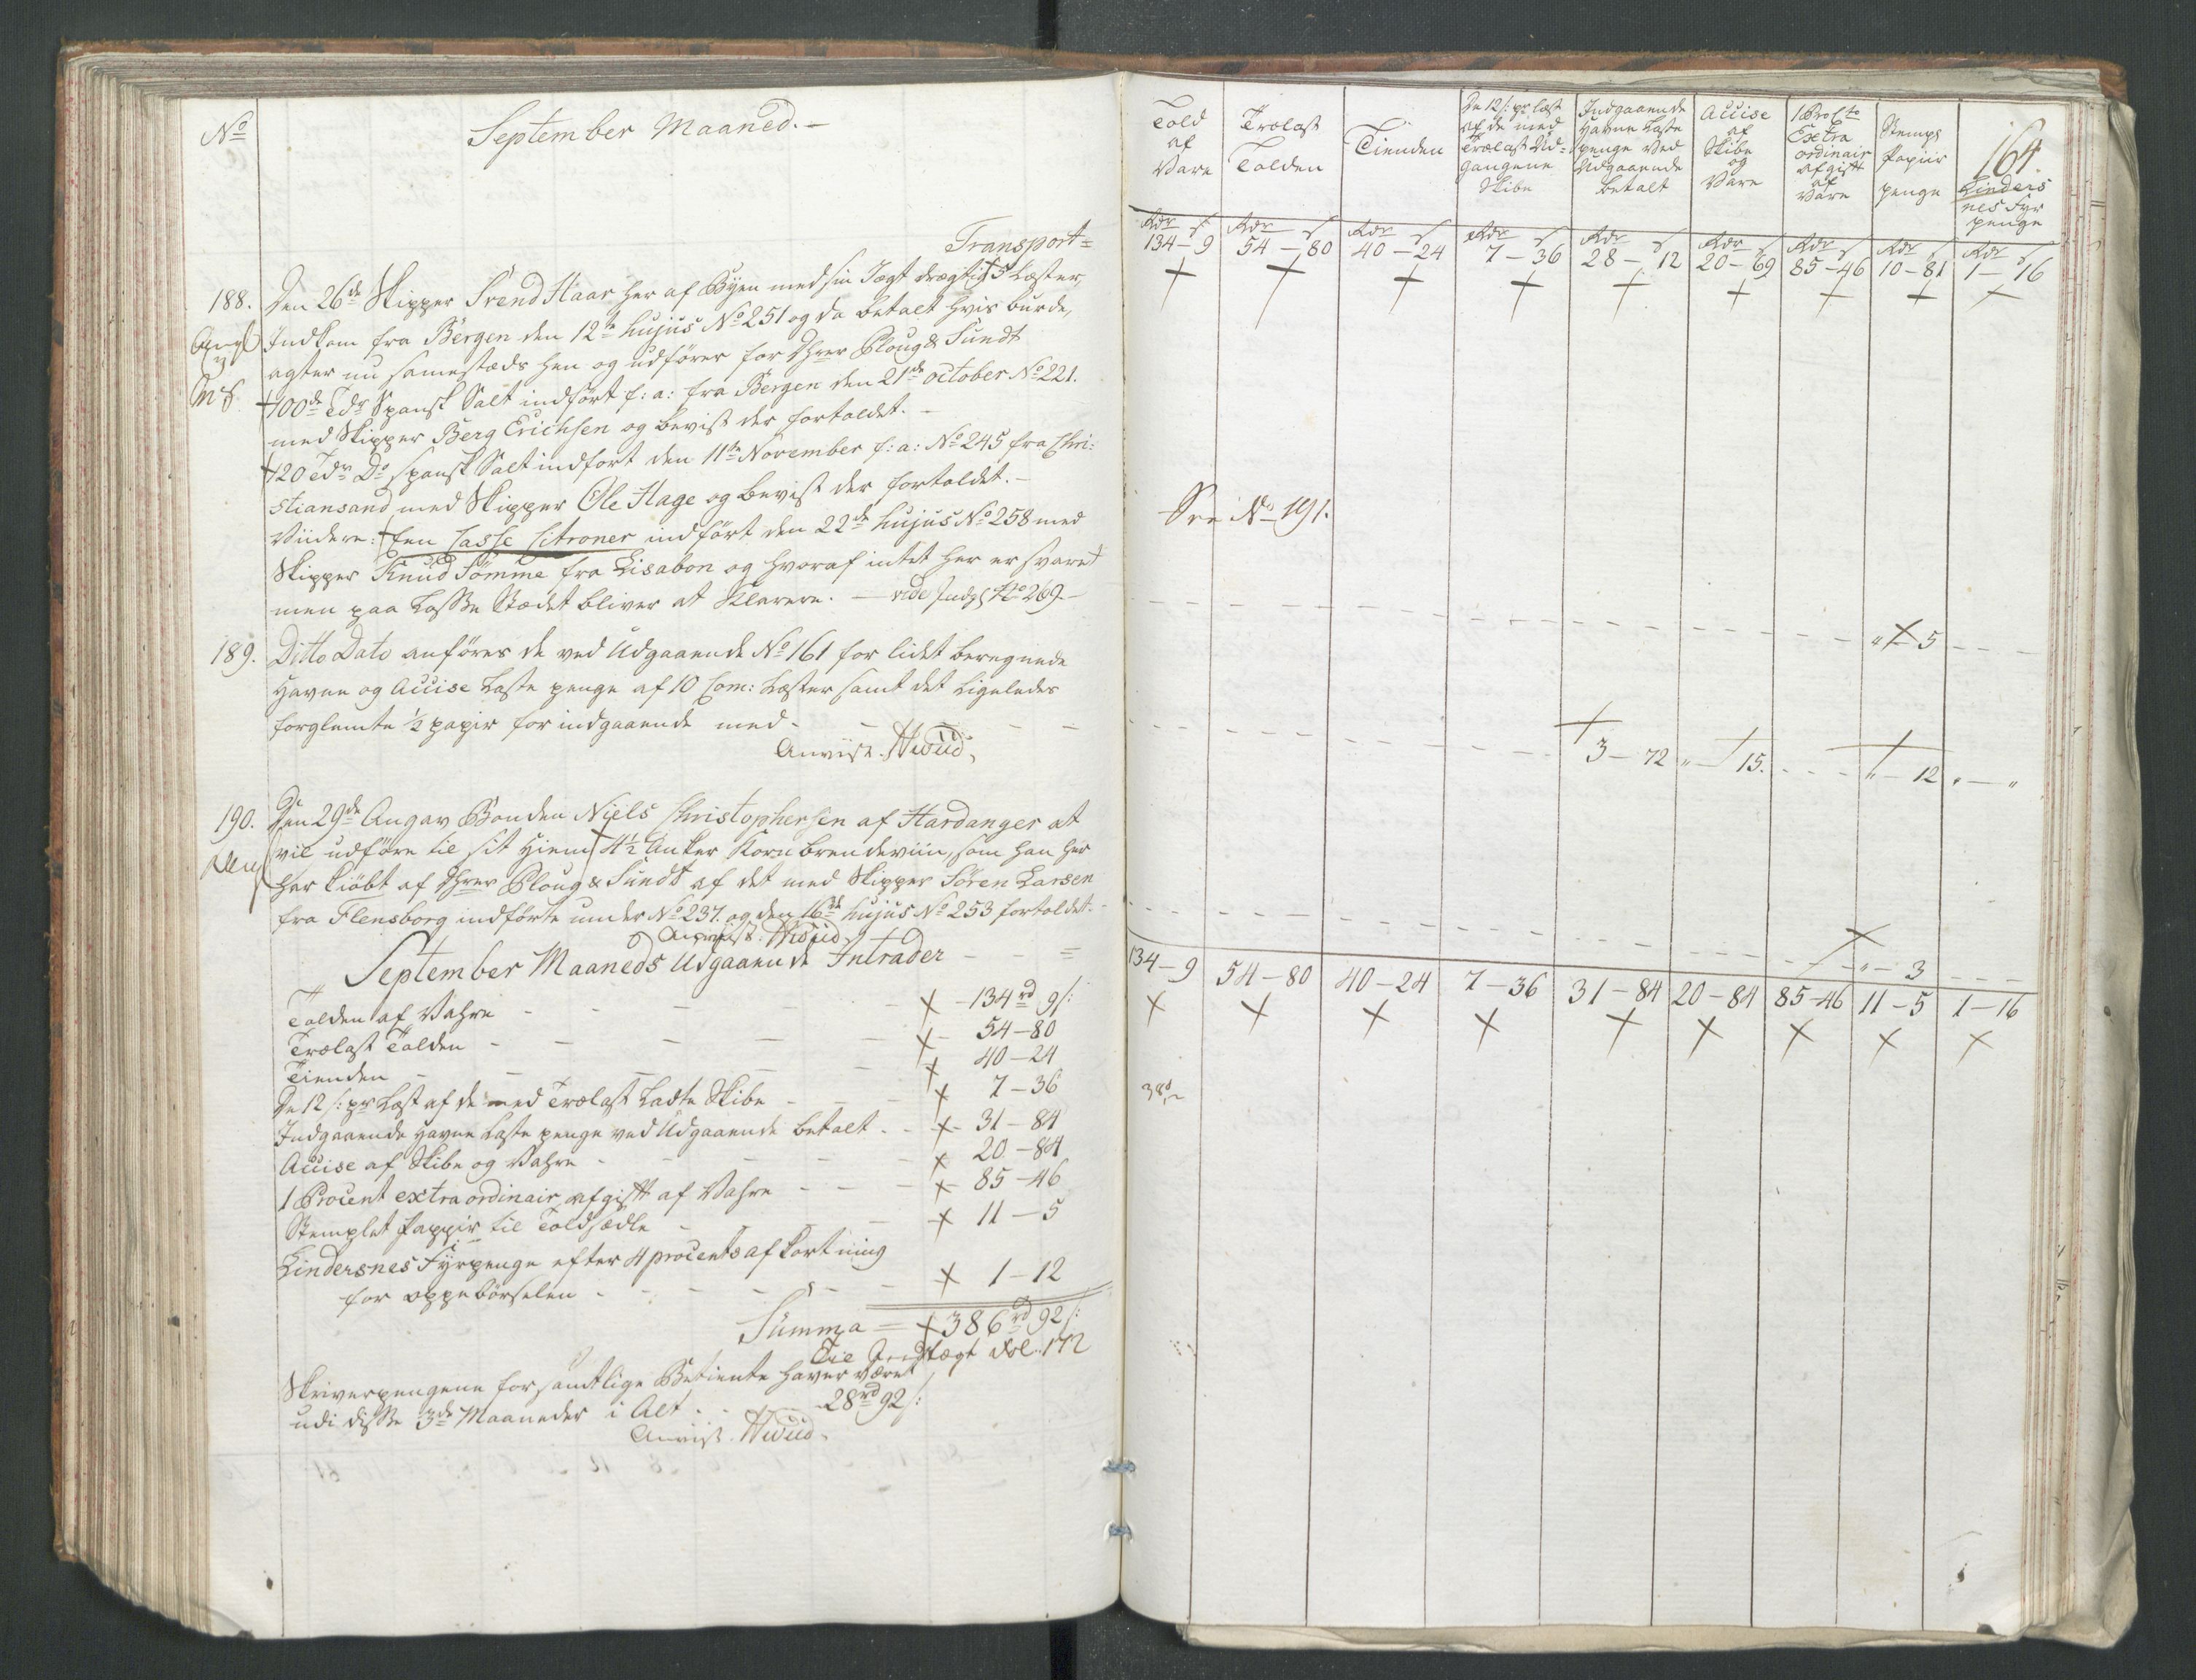 No
September Maaned.-
Transport=
188. Den 26de Skipper Svend Haar her af Byen med sin Jagt drægtig 5 Læster,
Indkom fra Bergen den 12te hujus No 251 og da betalt hvis burde,
agter nu sammestæds hen og udfører for Dhrer Ploug & Sundt
100de Tdr Spansk Salt indført f: a: fra Bergen den 21de october No 221.
med Skipper Berg Erichsen og bevist der fortoldet.-
120 Tdr Do Spansk Salt indført den 11te November f: a: No 245 fra Chri:
stiansand med Skipper Ole Hage og bevist der fortoldet.-
Viidere: Een Casse Citroner indført den 22de hujus No 258 med
Skipper Knud Sømme fra Lisabon og hvoraf intet her er svaret
men paa Losse Stædet bliver at Klarere. - vide Indg No 269.-
189. Ditto Dato anføres de ved Udgaaende No 161 for lidet beregnede
Havne og Accise Læste penge af 10 Com: Læster samt det ligeledes
forglemte 1/2 papir for indgaaende med-
Anviist.
190. Den 29de Angav Bonden Niels Christophersen af Hardanger at
vil udføre til sit Hiem 4 1/2 Anker Korn brendeviin, som han her
har kiøbt af Dhrer Ploug & Sundt af det med Skipper Søren Larsen
fra Flensborg indførte under No 237. og den 16de hujus No 253 fortoldet.-
Anviist.
September Maaneds Udgaaende Intrader - - =
Tolden af Vahre - 134rd 9/:
Trælast Tolden - 54-80
Tienden - 40-24
De 12/: pr Læst af de med Trælast Ladte Skibe - 7-36
Indgaaende Havne Læste penge ved Udgaaende betalt - 31-84
Accise af Skibe og Vahre - 20-84
1 Procent extraordinair afgift af Vahre - 85-46
Stemplet Pappir til Toldsedle - 11-5
Lindersnes Fyrpenge efter 4 procents afkortning
for oppebørselen - 1-12
Summa = 386rd 92/:
Til Indtægt Fol. 172
Skriverpengene for samtlige Betiente haver været
udi disse 3de Maaneder i Alt - 28rd 92/:
Anviist.
164.
Told af Vare
Trælast Tolden
Tienden
De 12/: pr læst af de med Trælast Ud=gangene Skibe
Indgaaende Havne Læste penge ved Udgaaende betalt
Accise af Skibe og Vare
1 Procto Extra ordinair afgift af Vare
Stempt Papiir penge
Linders nes Fyr penge
Rdr / Rdr / Rdr / Rdr / Rdr / Rdr / Rdr / Rdr / Rdr /
134-9 54-80 40-24 7-36 28-12 20-69 85-46 10-81 1-16
See No 191.
" - 5
3-72 " - 15. " - 12 " - "
" - 3
134-9 54-80 40-24 7-36 31-84 20-84 85-46 11-5 1-16